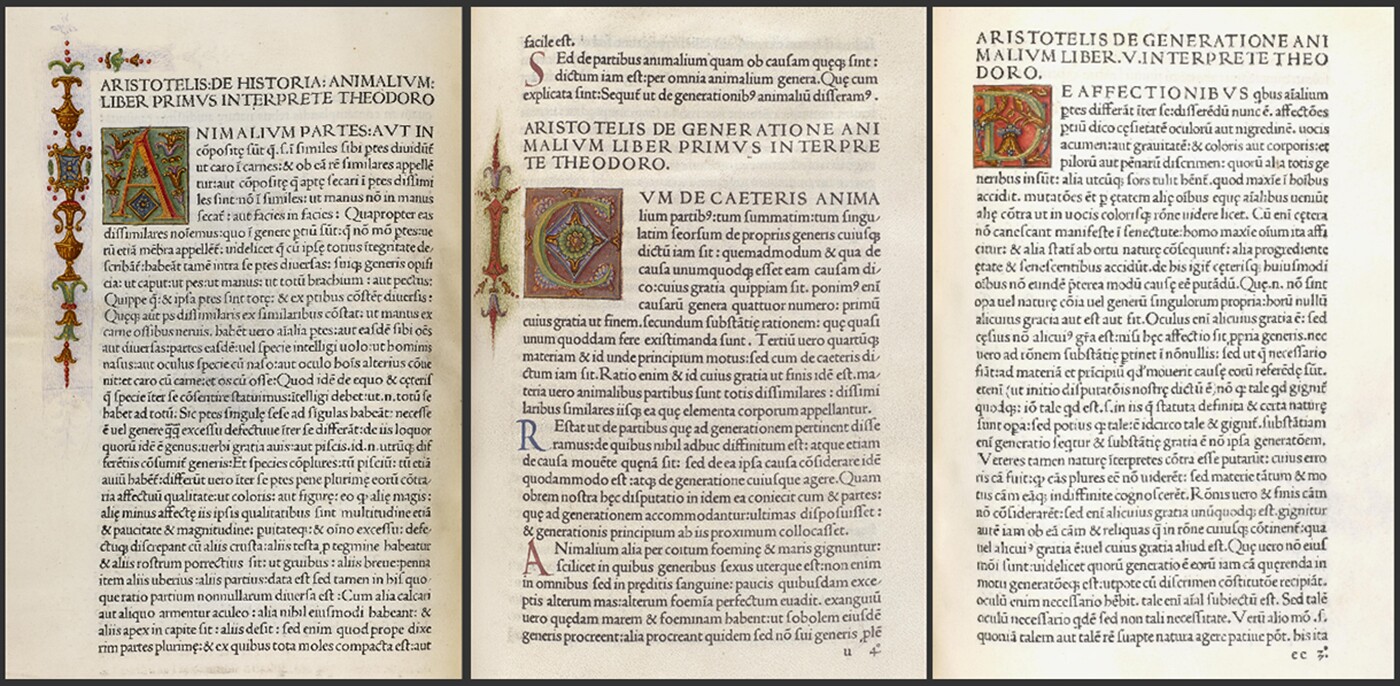 ARISTOTELIS:DE HISTORIA: ANIMALIVM:
LIBER PRIMVS INTERPRETE THEODORO
ANIMALIVM PARTES:AVT IN
cōpositę sūt q̄.s.ī similes sibi ptes diuidūt
ut caro ī carnes:& ob cā rē similares appellē
tur:aut cōpositę q̄ aptę secari ī ptes dissimi
les sint:nō ī similes: ut manus nō in manus
secat̄ : aut facies in facies : Quapropter eas
dissimilares nosemus:quo ī genere ptiū sūt:q̄ nō mō ptes:ue
rū etiā mēbra appellēt̄: uidelicet q̄ cū ipsę totius ītegnitate de
scribāt̄:habeāt tamē intra se ptes diuersas: suiq; generis opisi
cia: ut caput:ut pes:ut manus: ut totū brachium : aut pectus:
Quippe q̄:& ipsa ptes sint totę: & ex ptibus cōstēt diuersis :
Quęq; aut ps dissimilaris ex similaribus cōstat: ut manus ex
carne ossibus neruis. habēt uero aīalia ptes:aut easdē sibi oēs
aut diuersas:partes easdē:uel specie intelligi uolo:ut hominis
nasus:aut oculus specie cū naso:aut oculo hoīs alterius cōue
nit:et caro cū carne:et os cū osse:Quod idē de equo & cęteris
q̄ specie īter se cōsentire statuimus:ītelligi debet:ut.n.totū se
habet ad totū: Sic ptes singulę sese ad sigulas habeāt: necesse
ē uel genere q̄q̄ excessu defectiue īter se differāt:de iis loquor
quorū idē ē genus:uerbi gratia auis:aut piscis.id.n.utrūq; dif
ferētiis cōsumit̄ generis:Et species cōplures:tū pisciū: tū etiā
auiū habēt̄:differūt uero īter se ptes pene plurimę eorū cōtra
ria affectuū qualitate:ut coloris: aut figurę: eo q̄ alię magis :
alię minus affectę iis ipsis qualitatibus sint multitudine etiā
& paucitate & magnitudine: puitateq;: & oīno excessu: defe-
ctuq; discrepant cū aliis crusta:aliis testa p tegmine habeatur
& aliis rostrum porrectius sit: ut gruibus : aliis breue:penna
item aliis uberius :aliis partius:data est sed tamen in his quo-
que ratio partium nonnullarum diuersa est :Cum alia calcari
aut aliquo armentur aculeo : alia nihil eiusmodi habeant: &
aliis apex in capite sit : aliis desit : sed enim quod prope dixe
rim partes plurimę:& ex quibus tota moles compacta est:aut
facile est.
Sed de partibus animalium quam ob causam quęq; sint :
dictum iam est:per omnia animalium genera. Quę cum
explicata sint:Sequit̄ ut de generationib⁹ animaliū disseram⁹ .
ARISTOTELIS DE GENERATIONE ANI
MALIVM LIBER PRIMVS INTERPRE
TE THEODORO.
CVM DE CAETERIS ANIMA
lium partib⁹:tum summatim:tum singu-
latim seorsum de propriis generis cuiusq;
dictū iam sit : quemadmodum & qua de
causa unumquodq; esset eam causam di-
co:cuius gratia quippiam sit. ponim⁹ enī
causarū genera quattuor numero: primū
cuius gratia ut finem.secundum substātię rationem: quę quasi
unum quoddam fere existimanda sunt. Tertiū uero quartūq;
materiam & id unde principium motus:sed cum de caeteris di-
ctum iam sit.Ratio enim & id cuius gratia ut finis idē est.ma-
teria uero animalibus partibus sunt totis dissimilares : dissimi
laribus similares iisq; ea quę elementa corporum appellantur.
REstat ut de partibus quę ad generationem pertinent disse
ramus:de quibus nihil adhuc diffinitum est: atque etiam
de causa mouēte quęnā sit: sed de ea ipsa causa cōsiderare idē
quodammodo est :atq; de generatione cuiusque agere.Quam
obrem nostra hęc disputatio in idem ea coniecit cum & partes:
quę ad generationem accommodantur:ultimas disposuisset :
& generationis principium ab iis proximum collocasset.
ANimalium alia per coitum foeminę & maris gignuntur:
scilicet in quibus generibus sexus uterque est:non enim
in omnibus sed in pręditis sanguine: paucis quibusdam exce-
ptis alterum mas:alterum foemīa perfectum euadit. exanguiū
uero quędam marem & foeminam habent:ut sobolem eiusdē
generis procreent:alia procreant quidem sed nō sui generis plē
u 4
ARISTOTELIS DE GENERATIONE ANI
MALIVM LIBER.V.INTERPRETE THEO
DORO.
DE AFFECTIONIBVS qbus aīalium
ptes differāt īter se:disserēdū nunc ē. affectōes
ptiū dico cęsietatē oculorū aut nigredinē. uocis
acumen:aut grauitatē:& coloris aut corporis:et
pilorū aut pēnarū discrimen: quorū alia totis ge
neribus insūt: alia utcūq; fors tulit hēnt̄.quod maxīe ī hoībus
accidit. mutatōes ēt p ętatem alię oībus eque aīalibus ueniūt
alię cōtra ut in uocis colorisq; rōne uidere licet. Cū enī cętera
nō canescant manifeste ī senectute:homo maxīe oīum ita affi
citur: & alia statī ab ortu naturę cōsequunt̄: alia progrediente
ętate & senescentibus accidūt.de his igit̄ cęterisq; huiusmodi
oībus nō eundē pterea modū causę eē putādū. Quę.n. nō sint
opa uel naturę cōia uel generū singulorum propria:horū nullū
alicuius gracia aut est aut fit.Oculus enī alicuius gratia ē: sed
cęsius nō alicui⁹ grā est:nisi hęc affectio sit ppria generis.nec
uero ad rōnem substātię ptinet ī nōnullis: sed ut q̄ necessario
fiāt:ad materiā et prīcipiū qd' mouerit causę eorū referēdę sūt.
etenī (ut initio disputatōis nostrę dictū ē) nō q tale qd gignit̄
quodq; iō tale qd est.s.in iis q̄ statuta definita & certa naturę
sunt opa:sed potius q tale:ē idcirco tale & gignit̄.substātiam
enī generatio seqtur & substātię gratia ē nō ipsa generatōem.
Veteres tamen naturę īterpretes cōtra esse putarūt: cuius erro
ris cā fuit:q eas plures eē nō uiderēt: sed materię tātum & mo
tus cām eāq; indiffinite cognoscerēt. Rōnis uero & finis cām
nō cōsiderarēt:sed enī alicuius gratia unūquodq; est.gignitur
autē iam ob eā cām & reliquas q̄ in rōne cuiusq; cōtinent̄:qua
uel alicui⁹ gratia ē:uel cuius gratia aliud est.Quę uero nō eius
mōi sunt:uidelicet quorū generatio ē eorū iam cā quęrenda in
motu generatōeq; est:utpote cū discrimen cōstitutōe recipiāt.
oculū enim necessario hēbit. tale enī aīal subiectū est. Sed talē
oculū necessario qdē sed non tali necessitate. Verū alio mō .s.
quoniā talem aut talē rē suapte natura agere patiue pōt. his ita
ee 3